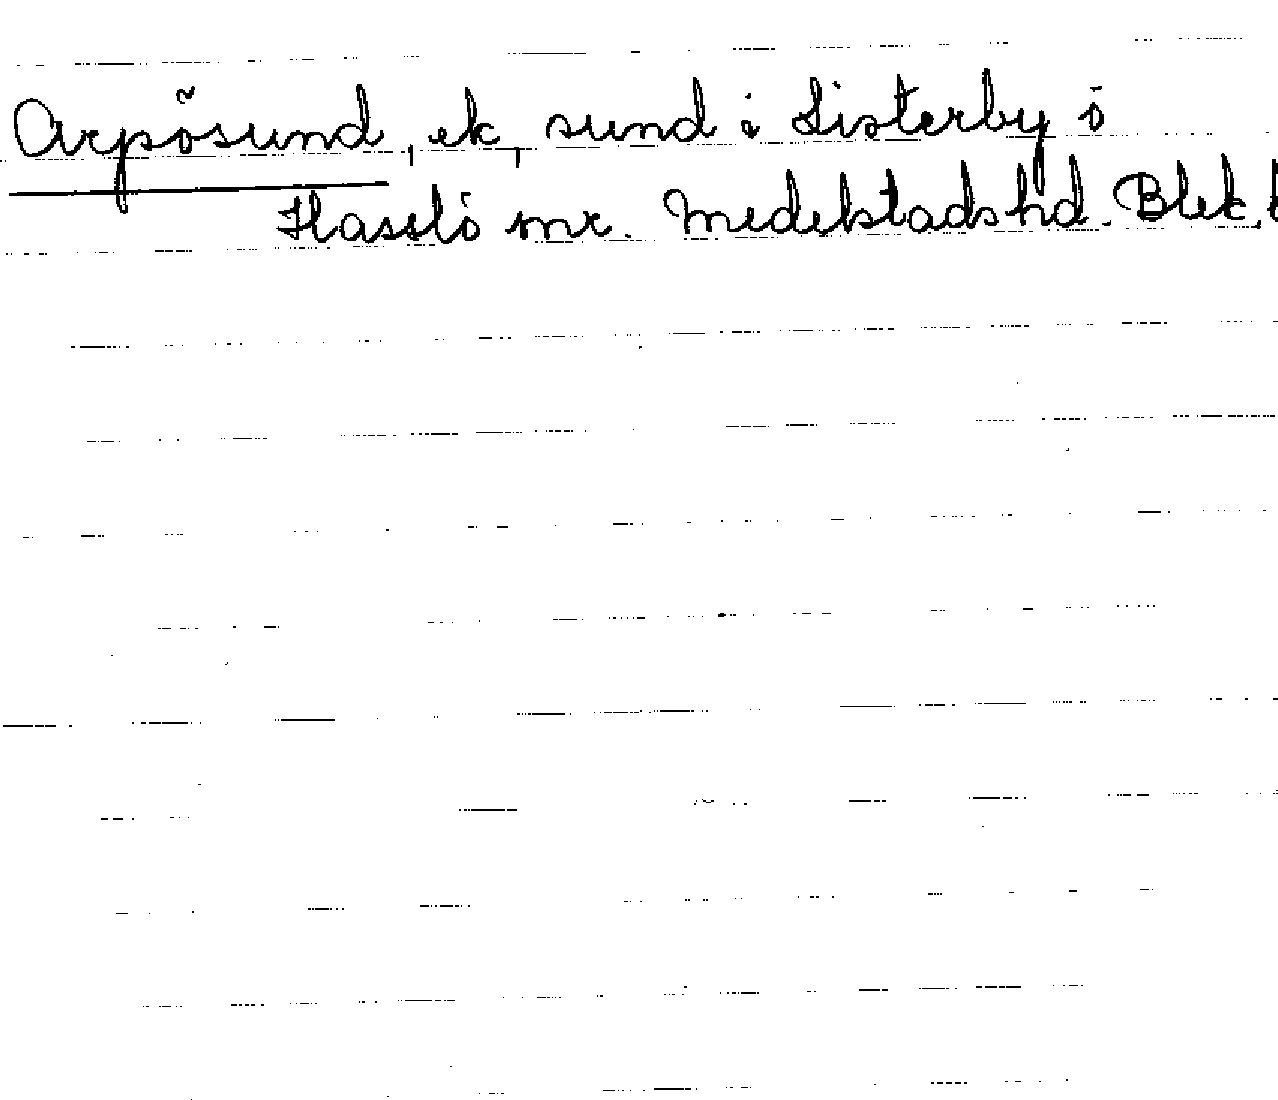 Arpösund, ek, sund i Listerby ö
Hasslö mr. Medelstads hd. Blek. l